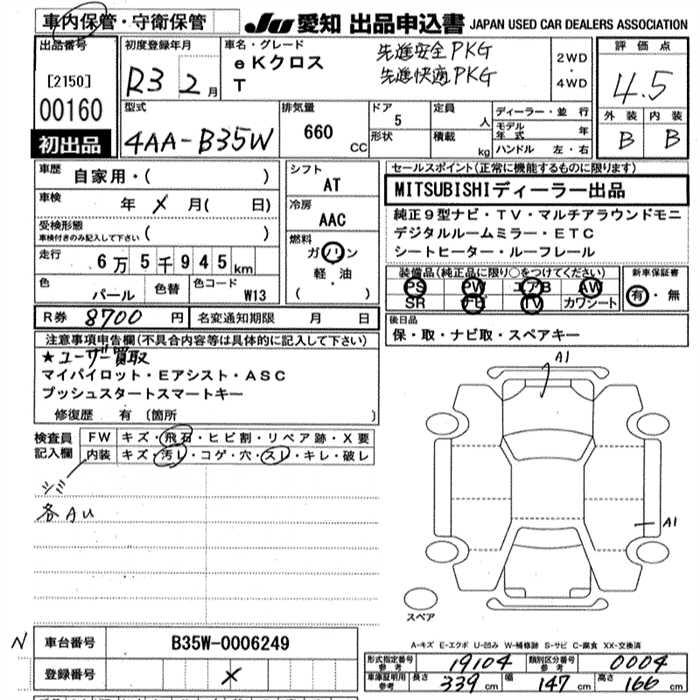 車内保管・守衛保管 JU 愛知 出品申込書 JAPAN USED CAR DEALERS ASSOCIATION
出品番号 [2150] 00160 初出品
初度登録年月 R3 2月
車名・グレード eKクロス T 先進安全PKG 先進快適PKG
2WD・4WD
評価点 4.5
外装 B 内装 B
型式 4AA-B35W
排気量 660 CC
ドア 5 形状
定員 人 積載 kg
ディーラー・並行
モデル年式 年
ハンドル 左・右
車歴 自家用・( )
車検 年 メ 月( 日)
受検形態 車検付きのみ記入して下さい ( )
走行 6万5千945km
色 パール 色替 色コード W13
シフト AT
冷房 AAC
燃料 ガソリン 軽・油 ( )
R券 8700 円 名変通知期限 月 日
セールスポイント(正常に機能するものに限ります)
MITSUBISHIディーラー出品
純正9型ナビ・TV・マルチアラウンドモニ
デジタルルームミラー・ETC
シートヒーター・ルーフレール
装備品(純正品に限り○をつけてください) 新車保証書
PS PW エアB AW 有・無
SR TV カワシート
後日品
保・取・ナビ取・スペアキー
注意事項申告欄(不具合内容等は具体的に記入して下さい)
★ユーザー買取
マイパイロット・Eアシスト・ASC
プッシュスタートスマートキー
修復歴 有 (箇所 )
検査員記入欄 FW キズ・飛石・ヒビ割・リペア跡・X要
内装 キズ・汚レ・コゲ・穴・スレ・キレ・破レ
シミ
各AU
A1
A1
スペア
A-キズ E-エクボ U-凹み W-補修跡 S-サビ C-腐食 XX-交換済
N 車台番号 B35W-0006249
登録番号 メ
形式指定番号参考 19104 類別区分番号参考 0004
車庫証明用参考 長さ 339 cm 幅 147 cm 高さ 166 cm